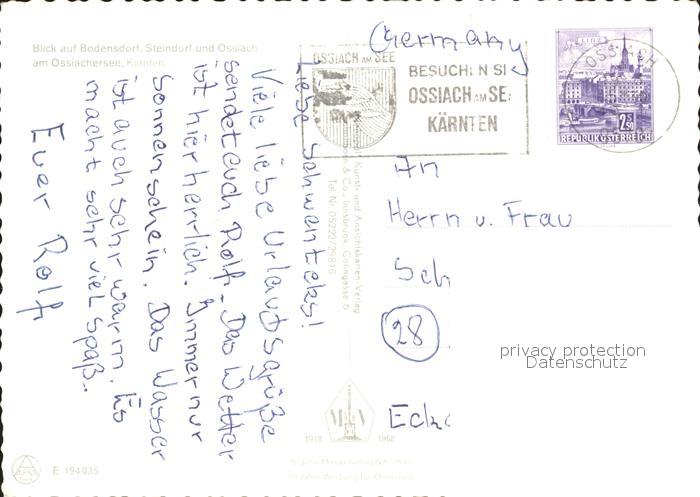 Blick auf Bodensdorf, Steindorf und Ossiach
am Ossiachersee, Kärnten
Germany
OSSIACH AM SEE
BESUCHEN SI
OSSIACH AM SE
KÄRNTEN
OSSIACH
LINZ
2.50
REPUBLIK ÖSTERREICH
Liebe Schwenteks!
Viele liebe Urlaubsgrüße
sendet euch Rolf. Das Wetter
ist hier herrlich. Immer nur
Sonnenschein. Das Wasser
ist auch sehr warm. Es
macht sehr viel Spaß.
Euer Rolf
Kunst- und Ansichtskarten-Verlag
& Co., Innsbruck,
Tel. Nr. 05222/29816
An
Herrn u. Frau
Sch
28
Ecke
privacy protection
Datenschutz
1918 1968
E 194035